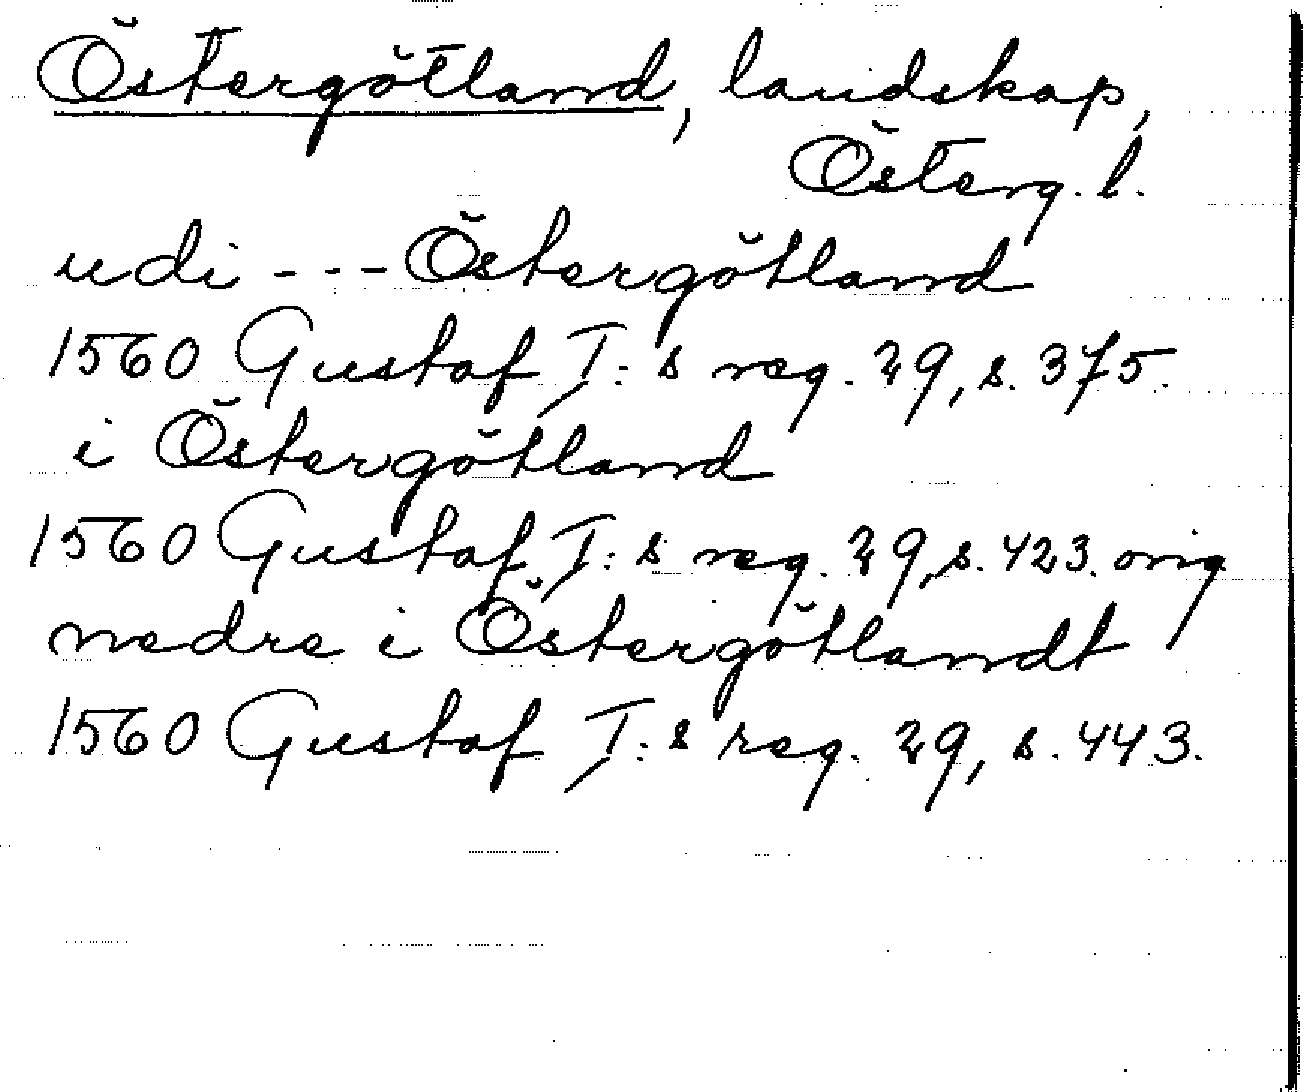 Östergötland, landskap,
Österg. l.
udi - - - Östergötland
1560 Gustaf I:s reg. 29, s. 375.
i Östergötland
1560 Gustaf I:s reg. 29, s. 423. orig
nedre i Östergötlandt
1560 Gustaf I:s reg. 29, s. 443.